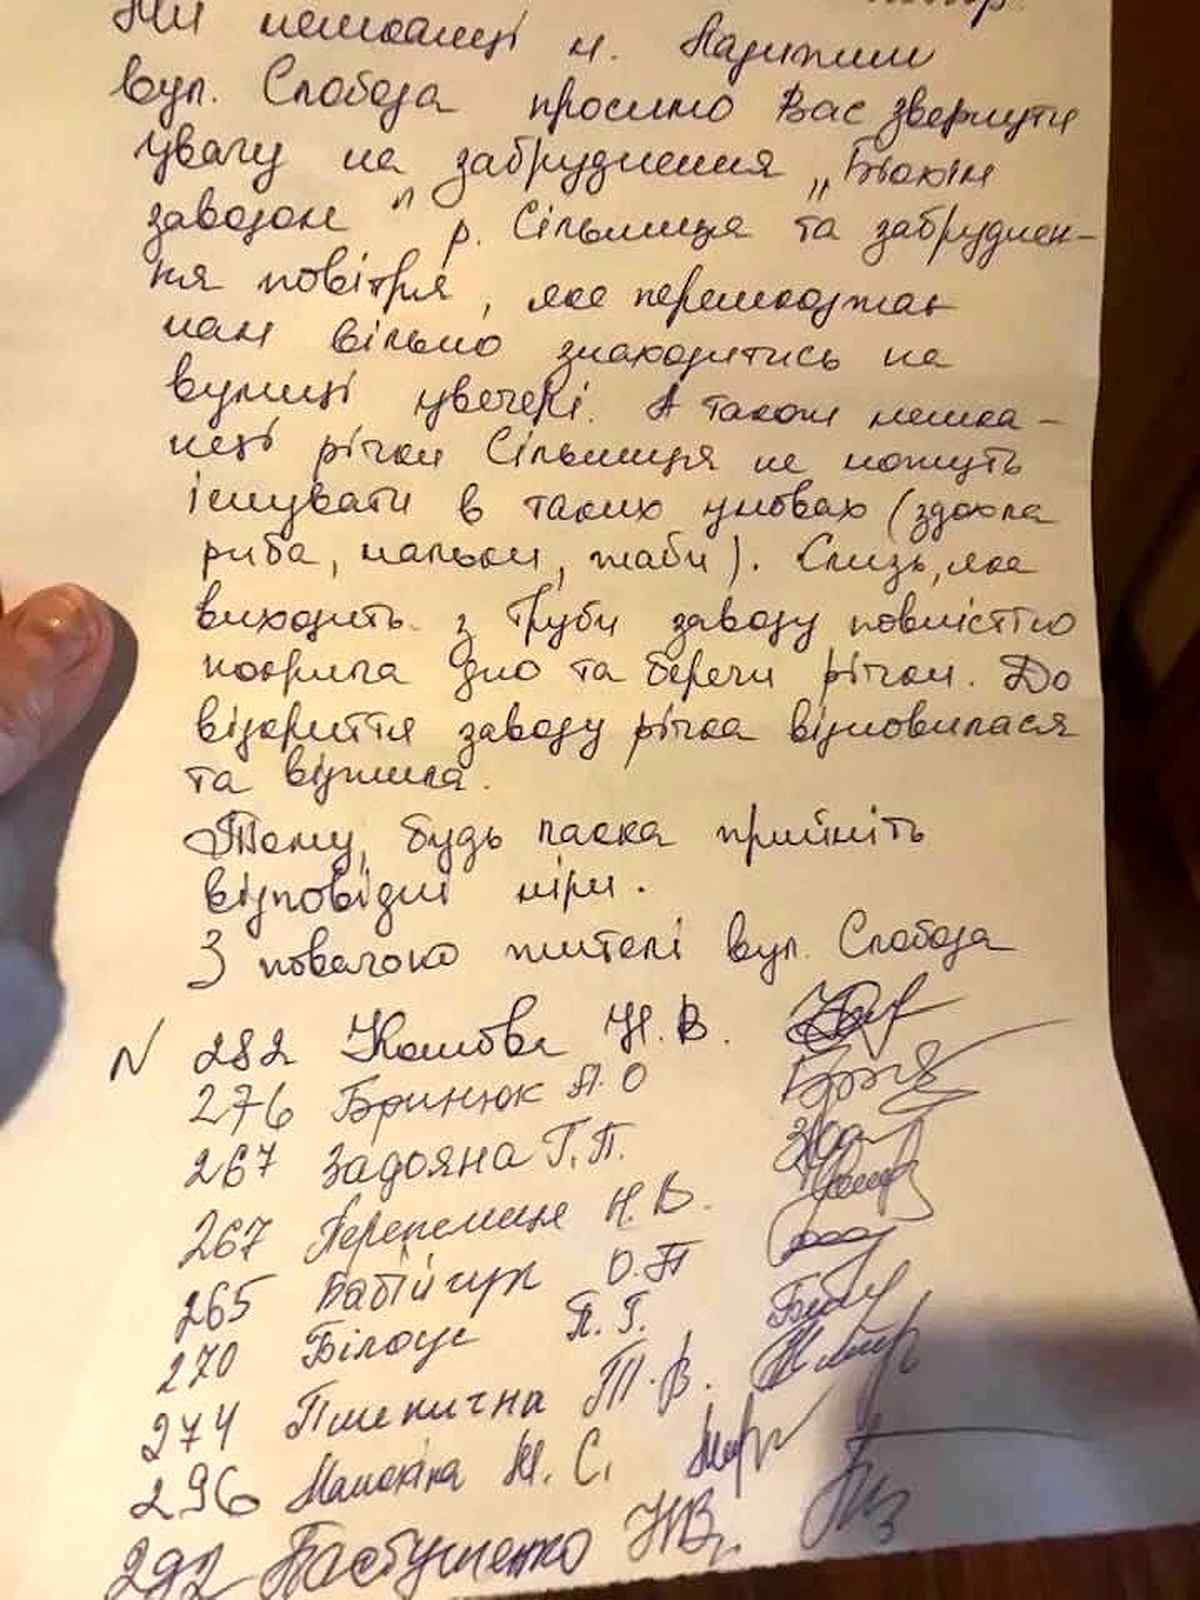 Ми мешканці м. Ладижин
вул. Слобода просимо Вас звернути
увагу на забруднення „Біохім
заводом" р. Сільниця та забруднен-
ня повітря, яке перешкоджає
нам вільно знаходитись на
вулиці увечері. А також мешка-
нці річки Сільниця не можуть
існувати в таких умовах (здохла
риба, мальки, жаби). Слизь, яка
виходить з труби заводу повністю
покрила дно та береги річки. До
відкриття заводу річка відновилася
та віджила.
Тому, будь ласка прийміть
відповідні міри.
З повагою жителі вул. Слобода
N 282 Н.В.
276 Бринюк Л.О
267 Задояна Г.П.
267 Перепелиця Н.В.
265 Бабійчук О.П
270 Білоус П.Г.
274 Пшенична Т.В.
296 М.С.
292 Н.В.